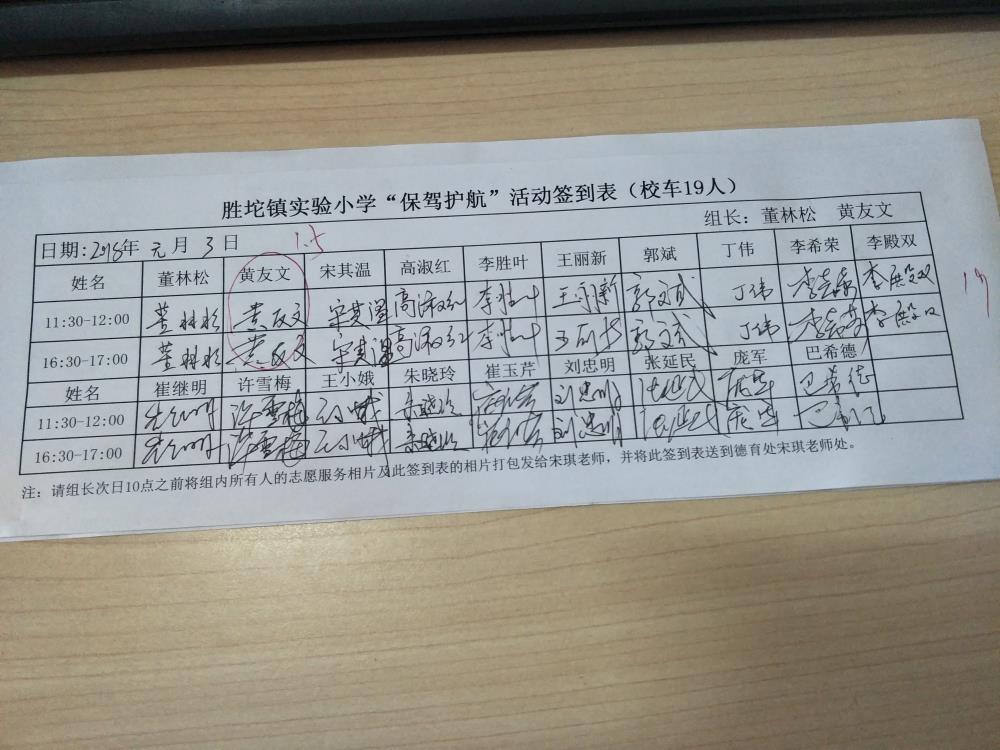 胜坨镇实验小学“保驾护航”活动签到表（校车19人）
组长：董林松 黄友文
日期: 2018年 元 月 3 日 1.5
姓名 董林松 黄友文 宋其温 高淑红 李胜叶 王丽新 郭斌 丁伟 李希荣 李殿双
11:30-12:00 董林松 黄友文 宋其温 高淑红 李胜叶 王丽新 郭文斌 丁伟 李希荣 李殿双
16:30-17:00 董林松 黄友文 宋其温 高淑红 李胜叶 王丽新 郭文斌 丁伟 李希荣 李殿双
姓名 崔继明 许雪梅 王小娥 朱晓玲 崔玉芹 刘忠明 张延民 庞军 巴希德
11:30-12:00 许雪梅 王小娥 朱晓玲 刘忠明 张延民 庞军 巴希德
16:30-17:00 许雪梅 王小娥 朱晓玲 刘忠明 张延民 庞军
注：请组长次日10点之前将组内所有人的志愿服务相片及此签到表的相片打包发给宋琪老师，并将此签到表送到德育处宋琪老师处。